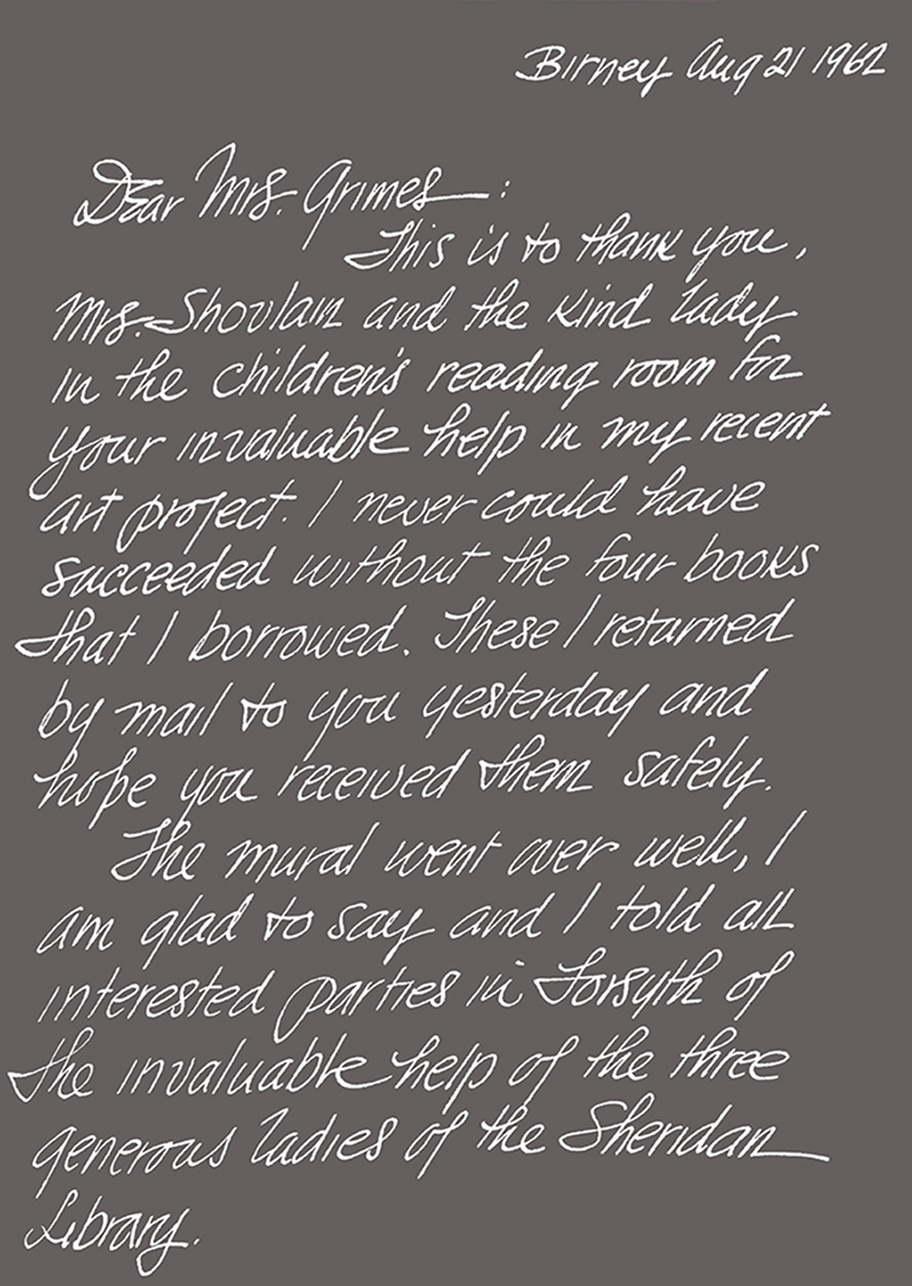 Birney Aug 21 1962
Dear Mrs. Grimes:
This is to thank you,
Mrs. Shovlain and the kind lady
in the children's reading room for
your invaluable help in my recent
art project. I never could have
succeeded without the four books
that I borrowed. These I returned
by mail to you yesterday and
hope you received them safely.
The mural went over well, I
am glad to say and I told all
interested parties in Forsyth of
the invaluable help of the three
generous ladies of the Sheridan
Library.